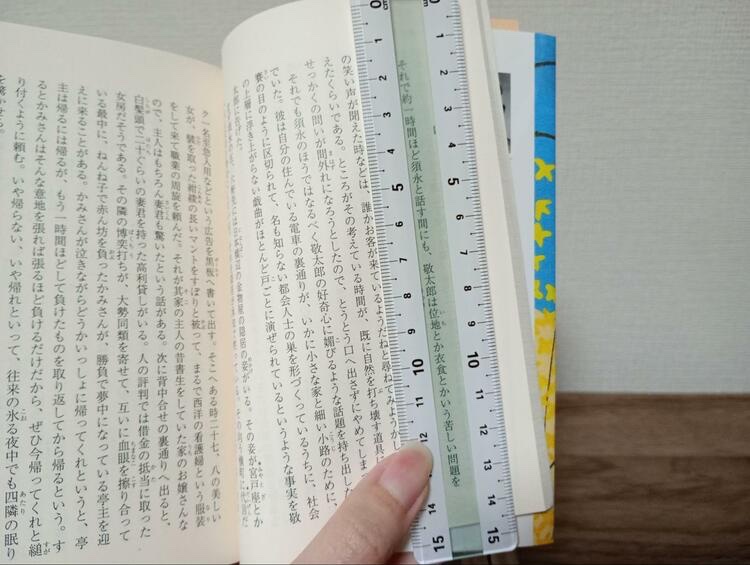 cm 0 1 2 3 4 5 6 7 8 9 10 11 12 13 14 15
それで約一時間ほど須永と話す間にも、敬太郎は位地とか衣食とかいう苦しい問題を
の笑い声が聞えた時などは、誰かお客が来ているようだねと尋ねてみようか
えたくらいである。ところがその考えている時間が、既に自然を打ち壊す道具
せっかくの問いが間外れになろうとしたので、とうとう口へ出さずにやめてしま
それでも須永のほうではなるべく敬太郎の好奇心に媚びるような話題を持ち出し
でいた。彼は自分の住んでいる電車の裏通りが、いかに小さな家と細い小路のために、
賽の目のように区切られて、名も知らない都会人士の巣を形づくっているうちに、社会
の上層に浮き上がらない戯曲がほとんど戸ごとに演ぜられているというような事実を敬
太郎に告げた。
日本橋辺の金物屋の隠居の妾がいる。その妾が宮戸座とか
ク一名至急入用などという広告を黒板へ書いて出す。そこへある時二十七、八の美しい
女が、襞を取った紺綾の長いマントをすぽりと被って、まるで西洋の看護婦という服装
をして来て職業の周旋を頼んだ。それが其家の主人の昔書生をしていた家のお嬢さんな
ので、主人はもちろん妻君も驚いたという話がある。次に背中合せの裏通りへ出ると、
白髪頭で二十ぐらいの妻君を持った高利貸しがいる。人の評判では借金の抵当に取った
女房だそうである。その隣の博奕打ちが、大勢同類を寄せて、互いに血眼を擦り合って
いる最中に、ねんね子で赤ん坊を負ったかみさんが、勝負で夢中になっている亭主を迎
えに来ることがある。かみさんが泣きながらどうかいっしょに帰ってくれというと、亭
主は帰るには帰るが、もう一時間ほどして負けたものを取り返してから帰るという。す
るとかみさんはそんな意地を張れば張るほど負けるだけだから、ぜひ今帰ってくれと縋
り付くように頼む。いや帰らない、いや帰れといって、往来の氷る夜中でも四隣の眠り
を驚かせる。